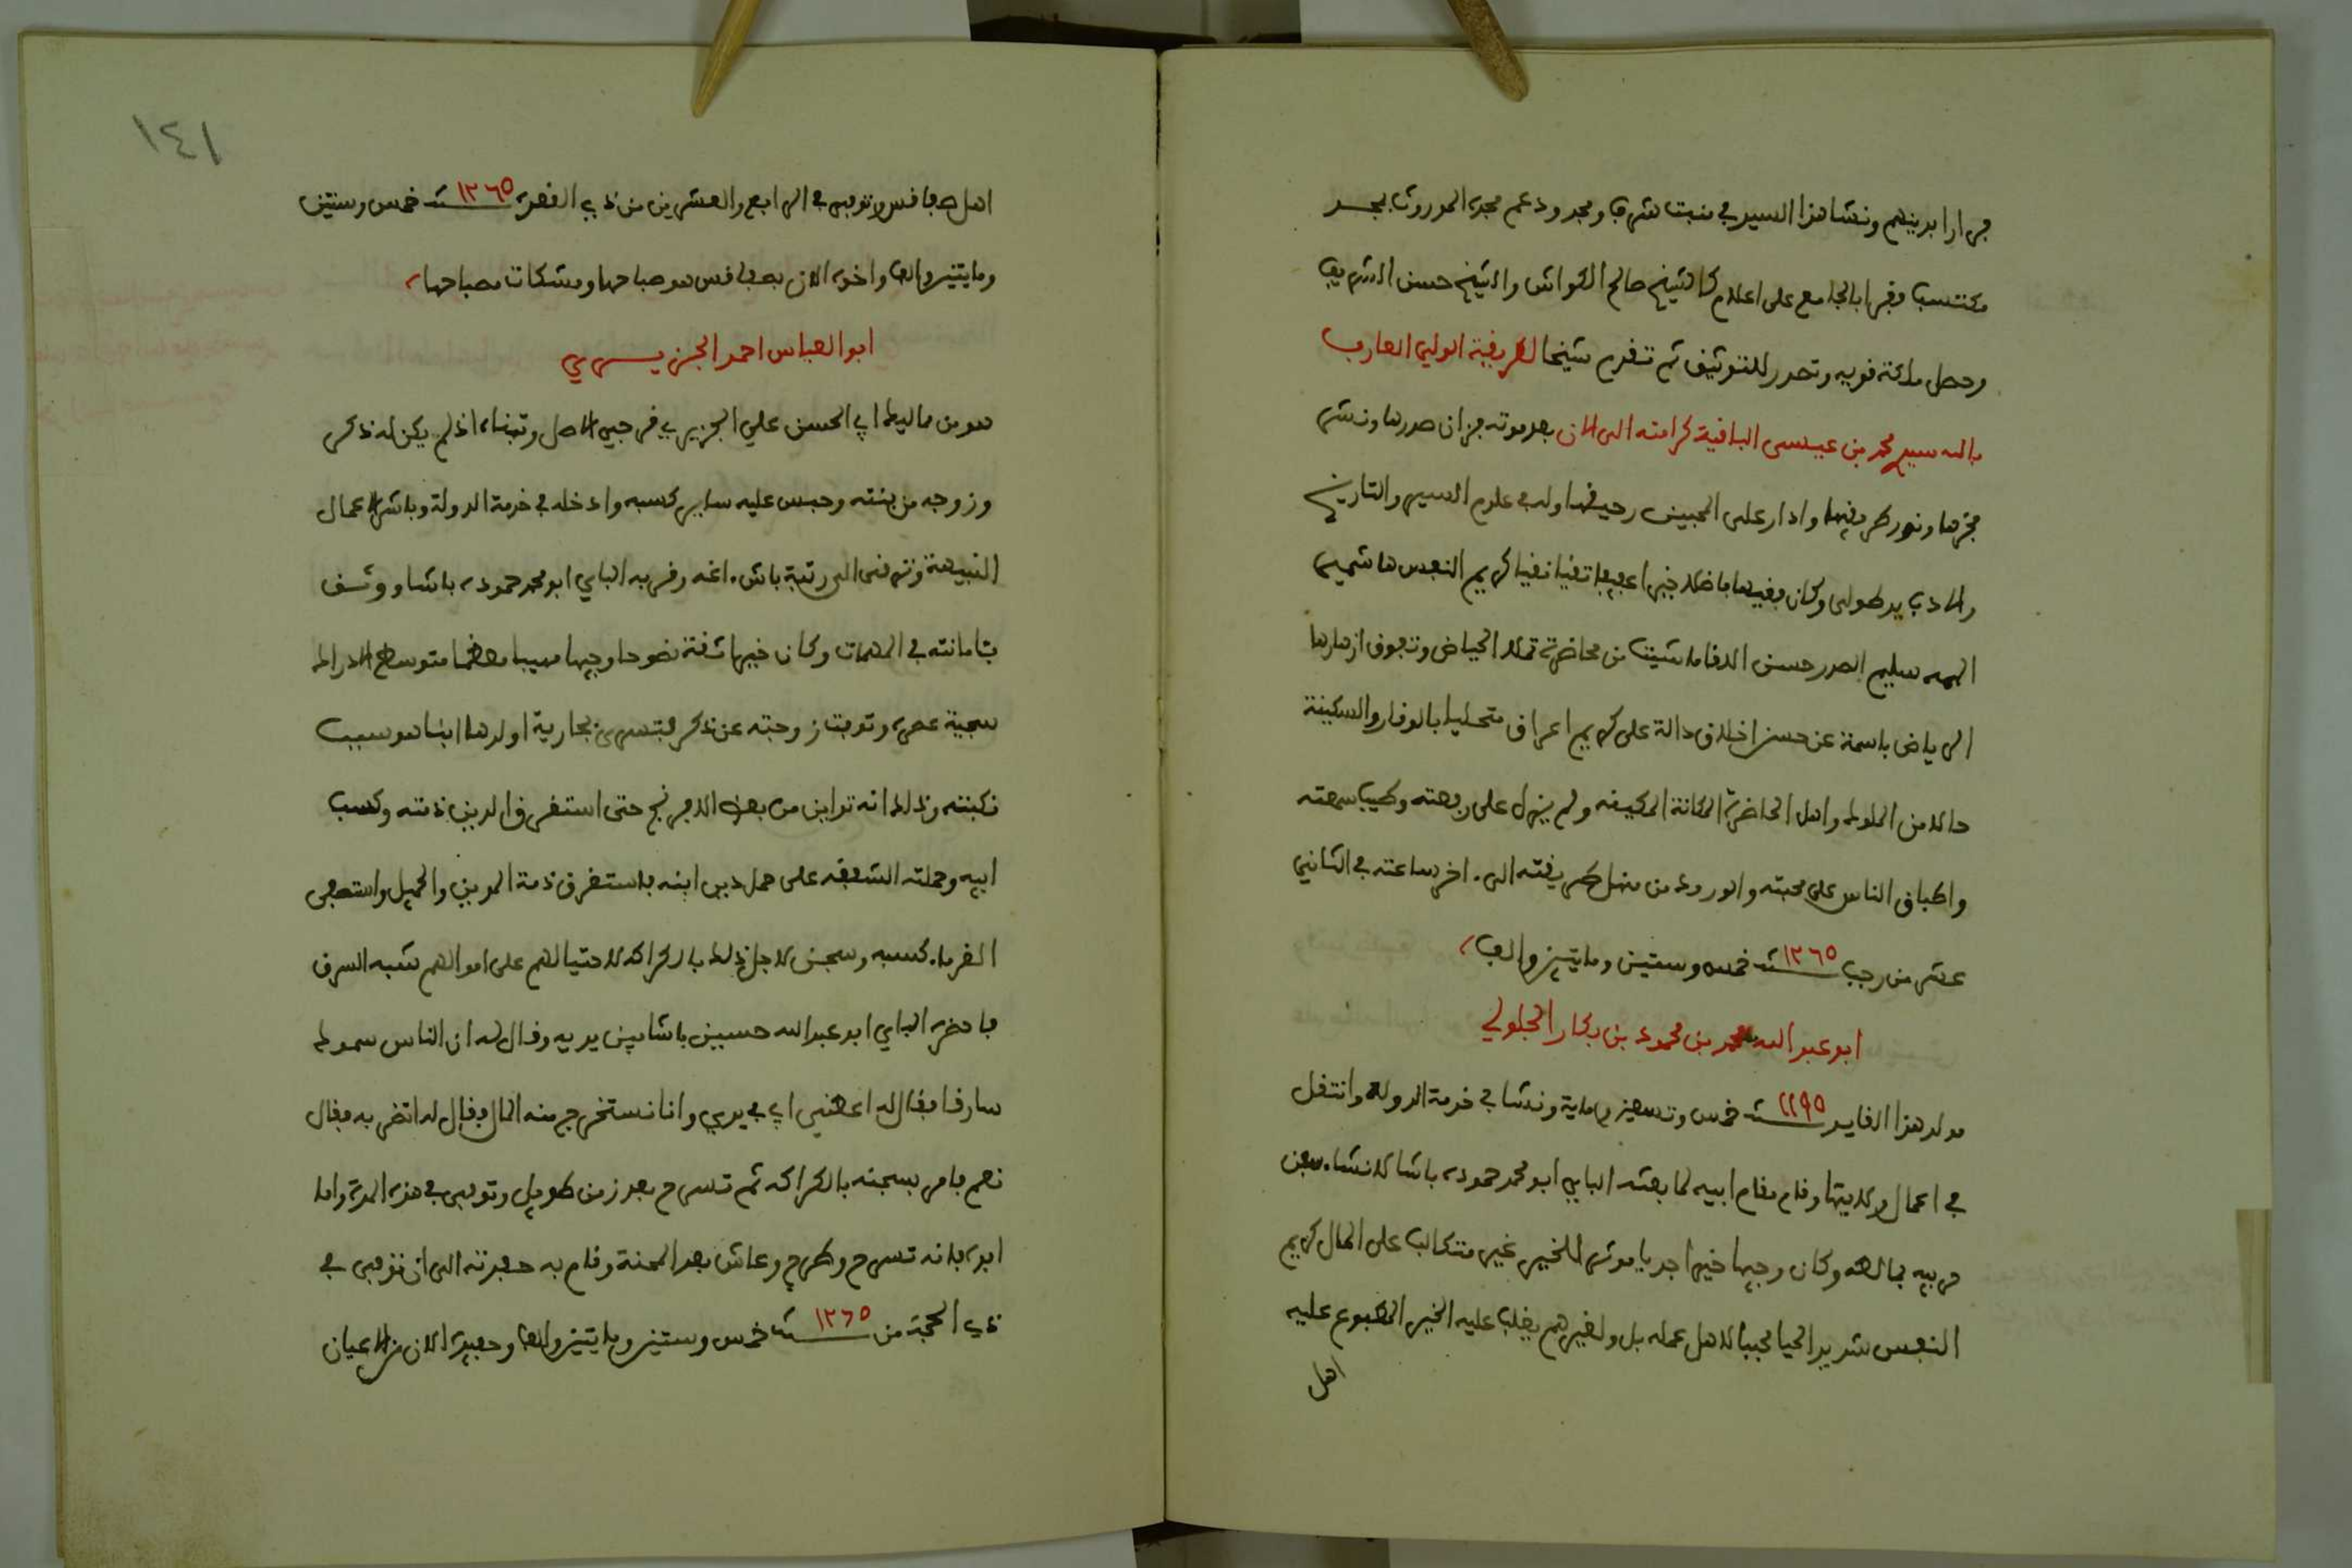 قرارا بدينهم ونشا هذا السيد في منبت شرف ومجد ودعم مجده الموروث بمجد
مكتسب وقرا بالجامع على اعلام كالشيخ صالح الكواش والشيخ حسن الشريف
وحصل ملكة قوية وتصدر للتوثيق ثم تقدم شيخا لطريقة الولي العارف
بالله سيدي محمد بن عيسى الباقية كرامته الى الان بعد موته فزان صدرها ونشر
فخرها ونور طريقها وادار على المحبين رحيقها وله في علوم السير والتاريخ
والادب يد طولى وكان فقيها فاضلا خيرا عفيفا تقيا نقيا كريم النفس هاشمي
الهمة سليم الصدر حسن اللقا ما شيت من محاضرة تملا الحياض وتفوق ازهارها
الرياض باسمة عن حسن اخلاق دالة على كريم اعراق متحليا بالوقار والسكينة
حالا من الملوك واهل الحاضرة المكانة المكينة ولم يزل على رفعته وطيب سمعته
واطباق الناس على محبته والورود من منهل طريقته الى اخر ساعته في الثاني
عشر من رجب سنة ١٢٦٥ خمس وستين ومايتين والف
ابو عبد الله محمد بن محمود بن بكار الجلولي
مولد هذا القايد سنة ١١٩٥ خمس وتسعين وماية ونشا في خدمة الدولة وانتقل
في اعمال ولايتها وقام مقام ابيه لما بعثه الباي ابو محمد حموده باشا لانشاء سفن
حربيه بمالطه وكان وجيها خيرا جديا موثرا للخير غير متكالب على المال كريم
النفس شديد الحيا محببا لاهل عمله بل ولغيرهم يغلب عليه الخير المطبوع عليه
اهل
١٤١
اهل صفاقس وتوفي في الرابع والعشرين من ذي القعدة سنة ١٢٦٥ خمس وستين
ومايتين والف واخوه الان بصفاقس هو صباحها ومشكات مصباحها
ابو العباس احمد الجزيري
هو من مماليك ابي الحسن علي الجزيري فرجيي الاصل وتبناه اذ لم يكن له ذكر
وزوجه من بنته وحبس عليه ساير كسبه وادخله في خدمة الدولة وباشر الاعمال
النبيهة وترقى الى رتبة باش اغه وقربه الباي ابو محمد حموده باشا ووثق
بامانته في المهمات وكان خيرا ثقة نصوحا وجيها مهيبا معظما متوسط الادراك
سجية عصره وتوفت زوجته عن ذكر فتسرى بجارية اولدها ابنا هو سبب
نكبته وذلك انه تداين من بعض الافرنج حتى استغرق الدين ذمته وكسب
ابيه وحملته الشفقة على حمل دين ابنه فاستغرق ذمة المدين والحميل واستصفى
الغرماء كسبه وسجن لاجل ذلك بالكراكه لاحتيالهم على اموالهم شبه السرق
فاحضره الباي ابو عبد الله حسين باشا بين يديه وقال له ان الناس سموك
سارقا فقال له اعطني ابي في يدي وانا نستخرج منه المال فقال له اتضربه فقال
نعم فامر بسجنه بالكراكه ثم تسرح بعد زمن طويل وتوفي في هذه المدة واما
ابوه فانه تسرح وطرح وعاش بعد المحنة وقام به حفدته الى ان توفي في
ذي الحجة من سنة ١٢٦٥ خمس وستين ومايتين والف وحفيده الان من الاعيان